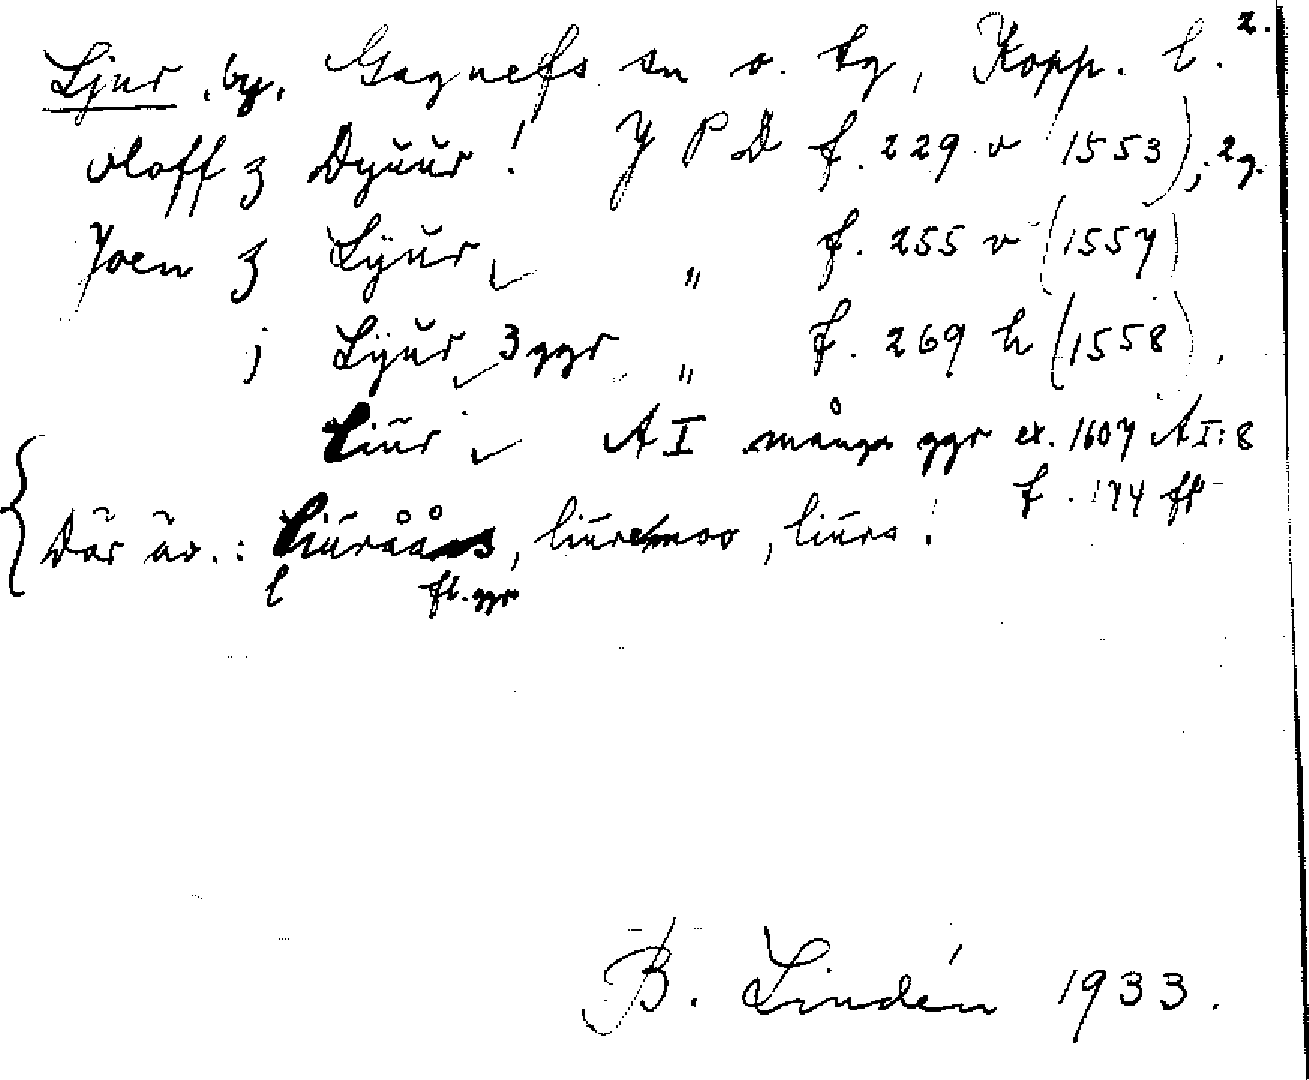 2.
Ljur, by, Gagnefs sn o. tg, Kopp. l.
oloff ʒ Dyŭŭr! J P D f. 229 v (1553), 2 g.
Joen ʒ Lÿŭr " f. 255 v (1557)
j Lÿŭr 3 ggr " f. 269 h (1558),
liŭr A I många ggr ex. 1607 A I:8
f. 174 ff
Där äv.: liŭråås, liŭremoo, liŭra!
l fl. ggr
B. Lindén 1933.